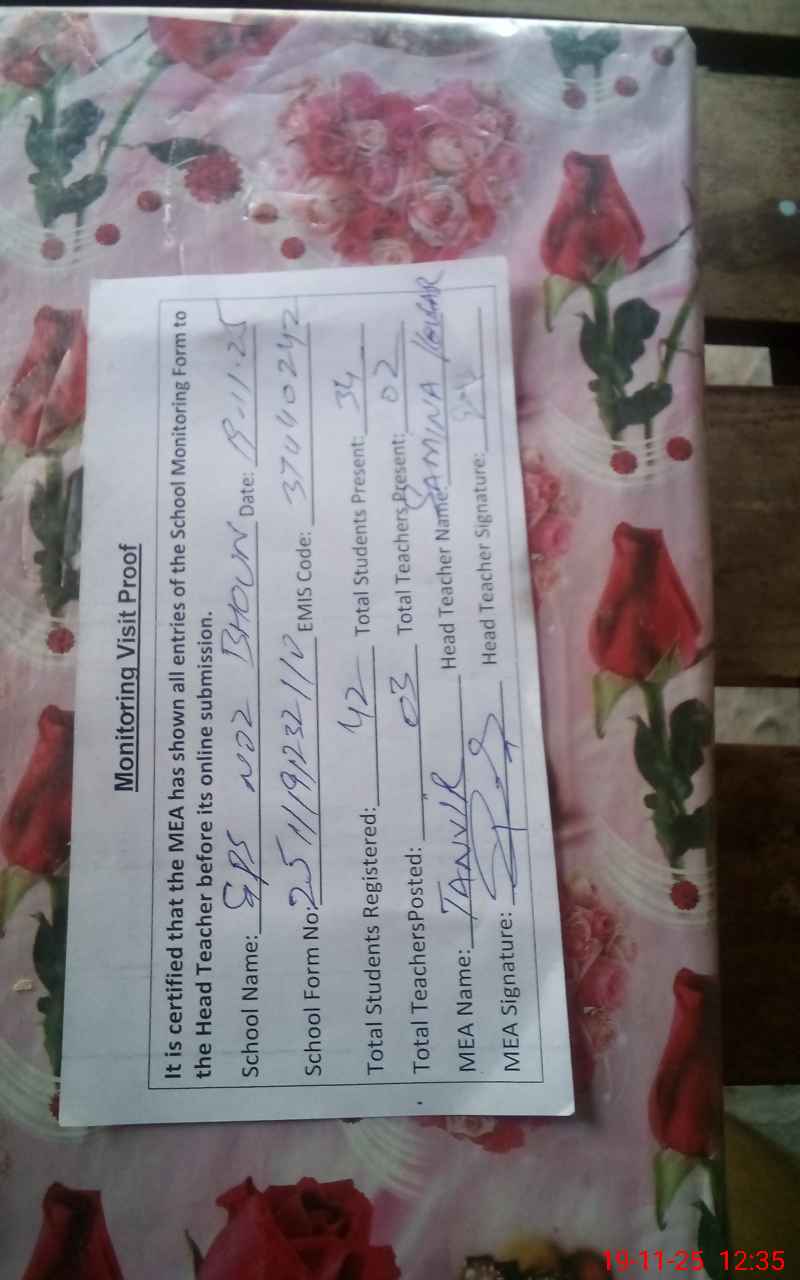 Monitoring Visit Proof
It is certified that the MEA has shown all entries of the School Monitoring Form to
the Head Teacher before its online submission.
School Name: GPS NO2 BHOUN Date: 19-11-25
School Form No: EMIS Code: 37440242
Total Students Registered: 42 Total Students Present: 34
Total TeachersPosted: 03 Total Teachers Present: 02
MEA Name: TANVIR Head Teacher Name: SAMINA
MEA Signature: Head Teacher Signature:
19-11-25 12:35